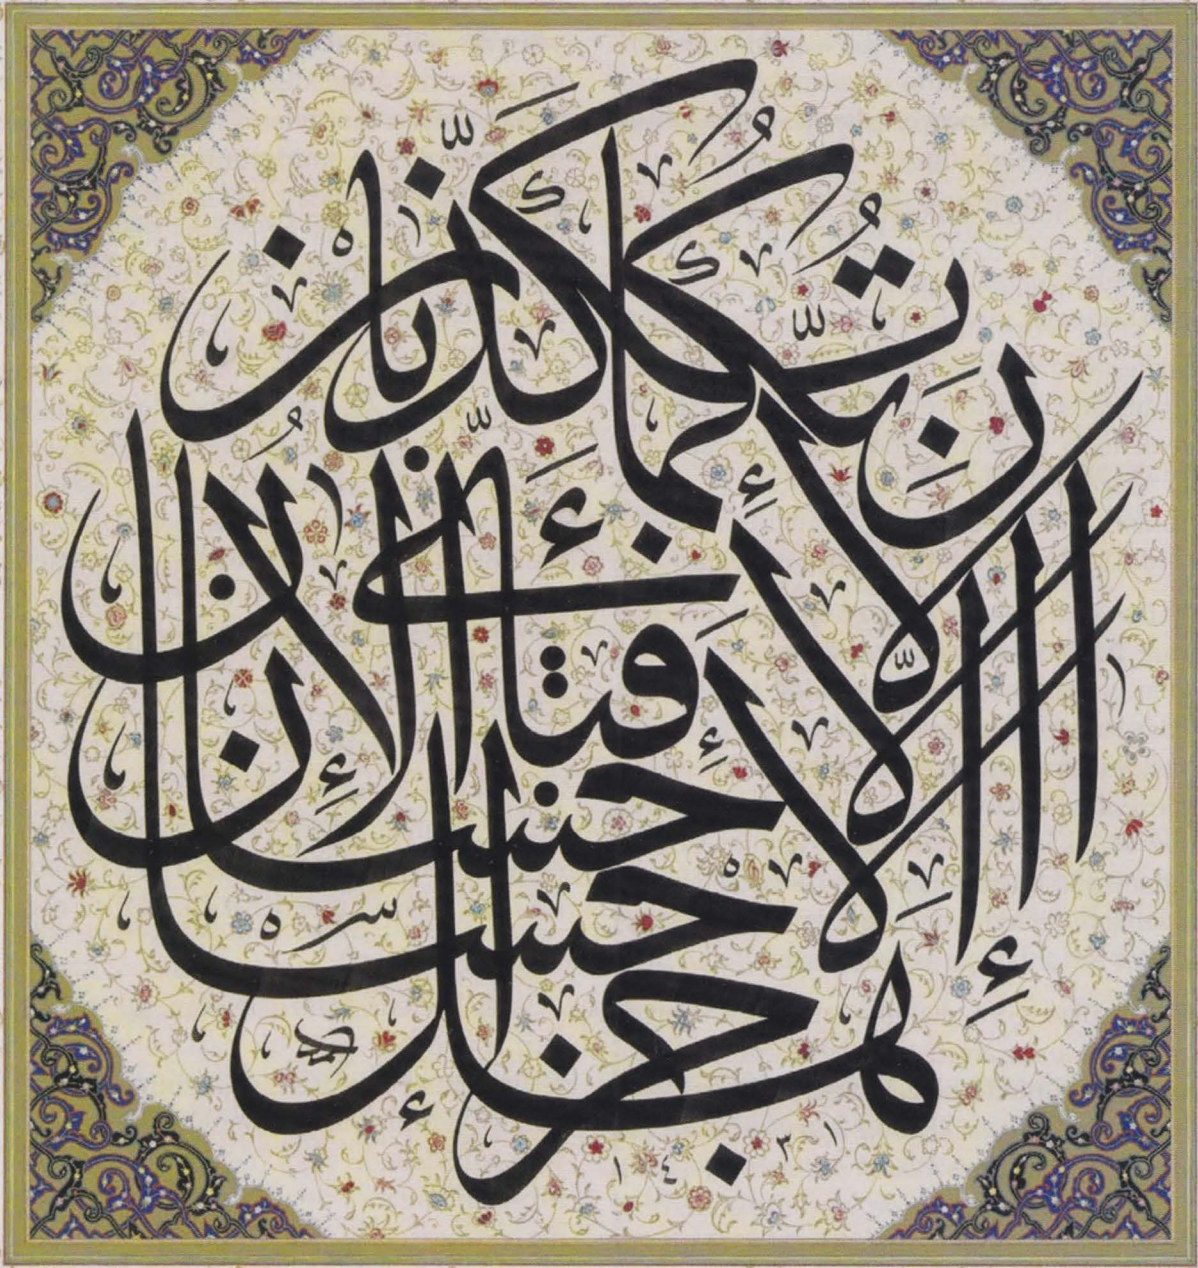 هَلْ جَزَاءُ الْإِحْسَانِ إِلَّا الْإِحْسَانُ
فَبِأَيِّ آلَاءِ رَبِّكُمَا تُكَذِّبَانِ
١٤٣١